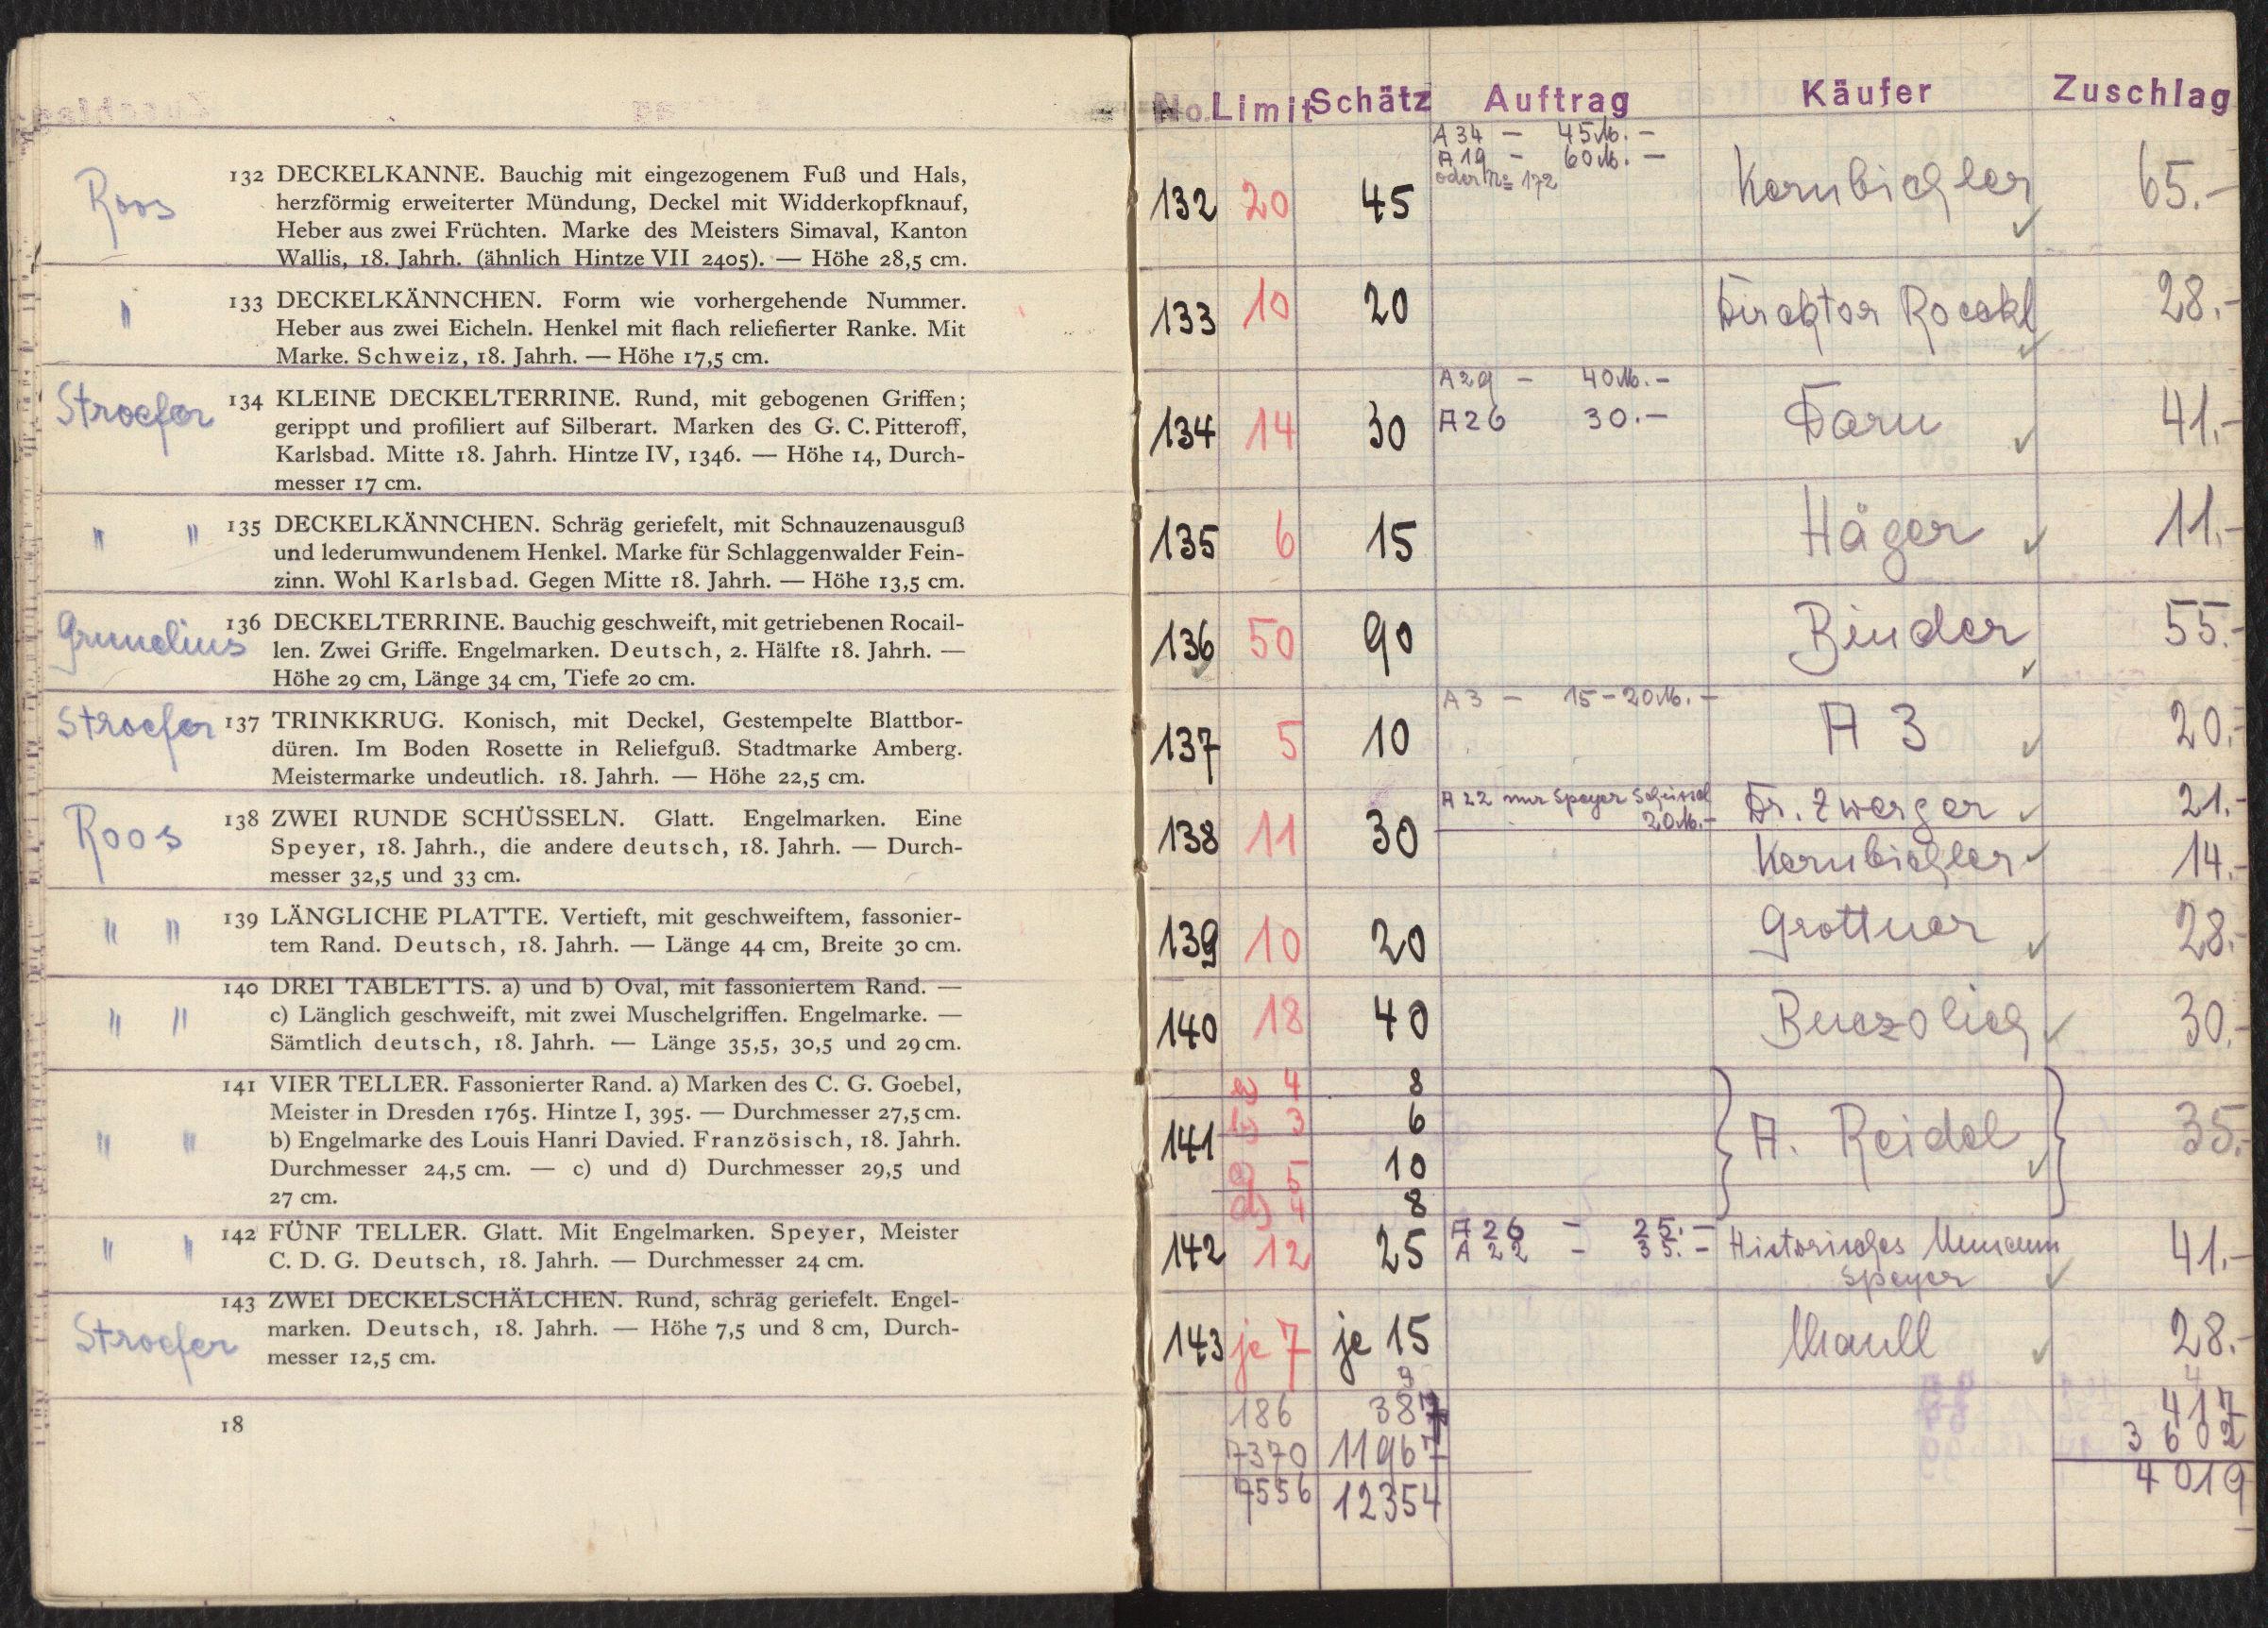 Roos
132 DECKELKANNE. Bauchig mit eingezogenem Fuß und Hals,
herzförmig erweiterter Mündung, Deckel mit Widderkopfknauf,
Heber aus zwei Früchten. Marke des Meisters Simaval, Kanton
Wallis, 18. Jahrh. (ähnlich Hintze VII 2405). — Höhe 28,5 cm.
" 133 DECKELKÄNNCHEN. Form wie vorhergehende Nummer.
Heber aus zwei Eicheln. Henkel mit flach reliefierter Ranke. Mit
Marke. Schweiz, 18. Jahrh. — Höhe 17,5 cm.
Stroefer 134 KLEINE DECKELTERRINE. Rund, mit gebogenen Griffen;
gerippt und profiliert auf Silberart. Marken des G. C. Pitteroff,
Karlsbad. Mitte 18. Jahrh. Hintze IV, 1346. — Höhe 14, Durch-
messer 17 cm.
" " 135 DECKELKÄNNCHEN. Schräg geriefelt, mit Schnauzenausguß
und lederumwundenem Henkel. Marke für Schlaggenwalder Fein-
zinn. Wohl Karlsbad. Gegen Mitte 18. Jahrh. — Höhe 13,5 cm.
Grunelius 136 DECKELTERRINE. Bauchig geschweift, mit getriebenen Rocail-
len. Zwei Griffe. Engelmarken. Deutsch, 2. Hälfte 18. Jahrh. —
Höhe 29 cm, Länge 34 cm, Tiefe 20 cm.
Stroefer 137 TRINKKRUG. Konisch, mit Deckel, Gestempelte Blattbor-
düren. Im Boden Rosette in Reliefguß. Stadtmarke Amberg.
Meistermarke undeutlich. 18. Jahrh. — Höhe 22,5 cm.
Roos 138 ZWEI RUNDE SCHÜSSELN. Glatt. Engelmarken. Eine
Speyer, 18. Jahrh., die andere deutsch, 18. Jahrh. — Durch-
messer 32,5 und 33 cm.
" " 139 LÄNGLICHE PLATTE. Vertieft, mit geschweiftem, fassonier-
tem Rand. Deutsch, 18. Jahrh. — Länge 44 cm, Breite 30 cm.
140 DREI TABLETTS. a) und b) Oval, mit fassoniertem Rand. —
" " c) Länglich geschweift, mit zwei Muschelgriffen. Engelmarke. —
Sämtlich deutsch, 18. Jahrh. — Länge 35,5, 30,5 und 29 cm.
141 VIER TELLER. Fassonierter Rand. a) Marken des C. G. Goebel,
Meister in Dresden 1765. Hintze I, 395. — Durchmesser 27,5 cm.
" " b) Engelmarke des Louis Hanri Davied. Französisch, 18. Jahrh.
Durchmesser 24,5 cm. — c) und d) Durchmesser 29,5 und
27 cm.
" " 142 FÜNF TELLER. Glatt. Mit Engelmarken. Speyer, Meister
C. D. G. Deutsch, 18. Jahrh. — Durchmesser 24 cm.
143 ZWEI DECKELSCHÄLCHEN. Rund, schräg geriefelt. Engel-
Stroefer marken. Deutsch, 18. Jahrh. — Höhe 7,5 und 8 cm, Durch-
messer 12,5 cm.
18
No. Limit Schätz Auftrag Käufer Zuschlag
A 34 — 45 M. —
A 19 — 60 M. —
oder No 172
132 20 45 Kernbichler 65.-
133 10 20 Direktor Roeskl 28.-
A 29 — 40 M. —
134 14 30 A 26 30.— Daru 41.-
135 6 15 Häger 11.-
136 50 90 Binder 55.-
A 3 — 15-20 M. —
137 5 10 A 3 20.-
138 11 30 A 22 nur Speyer Schüssel Dr. Zwerger 21.-
20 M. —
Kernbichler 14.-
139 10 20 Grottner 28.-
140 18 40 30.-
a) 4 8
b) 3 6
141 A. Reidel 35.-
c) 5 10
d) 4 8
A 26 — 25. —
142 12 25 A 22 — 35. — Historisches Museum 41.-
Speyer
143 je 7 je 15 Maull 28.-
9 4
186 387 417
7370 11967 3602
7556 12354 4019